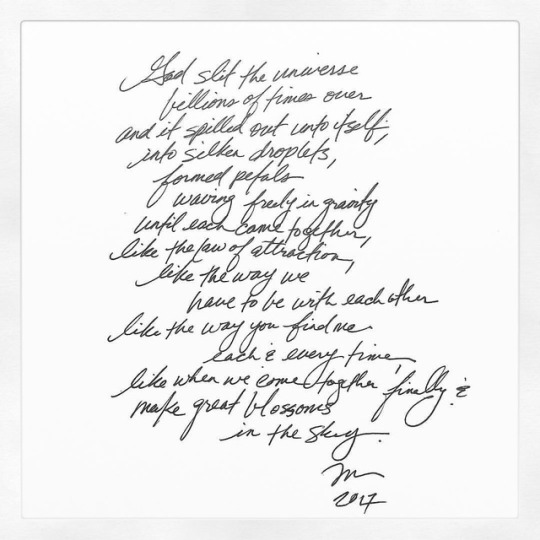 God slit the universe
billions of times over
and it spilled out unto itself,
into silken droplets,
formed petals
waving freely in gravity
until each came together,
like the law of attraction,
like the way we
have to be with each other
like the way you find me
each & every time,
like when we come together finally &
make great blossoms
in the sky.
2017